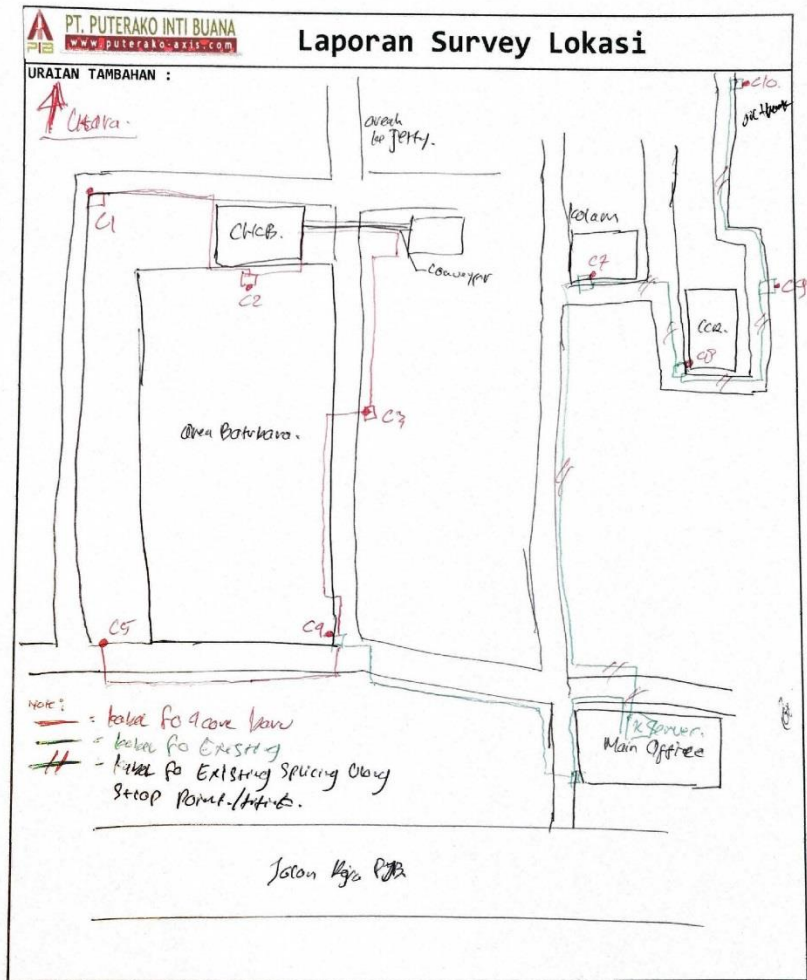 PT. PUTERAKO INTI BUANA
www.puterako-axis.com
PIB
Laporan Survey Lokasi
URAIAN TAMBAHAN :
Utara.
arah
ke Jetty.
C10.
C1
CHCB.
Conveyor
C2
kolam
C7
C9
CCR.
C8
C3
Area Batubara.
C5
C4
Note :
= kabel fo 4 core baru
= kabel fo Existing
= kabel fo Existing Splicing Ulang
Main Office
Server.
Jalan Raya PJB